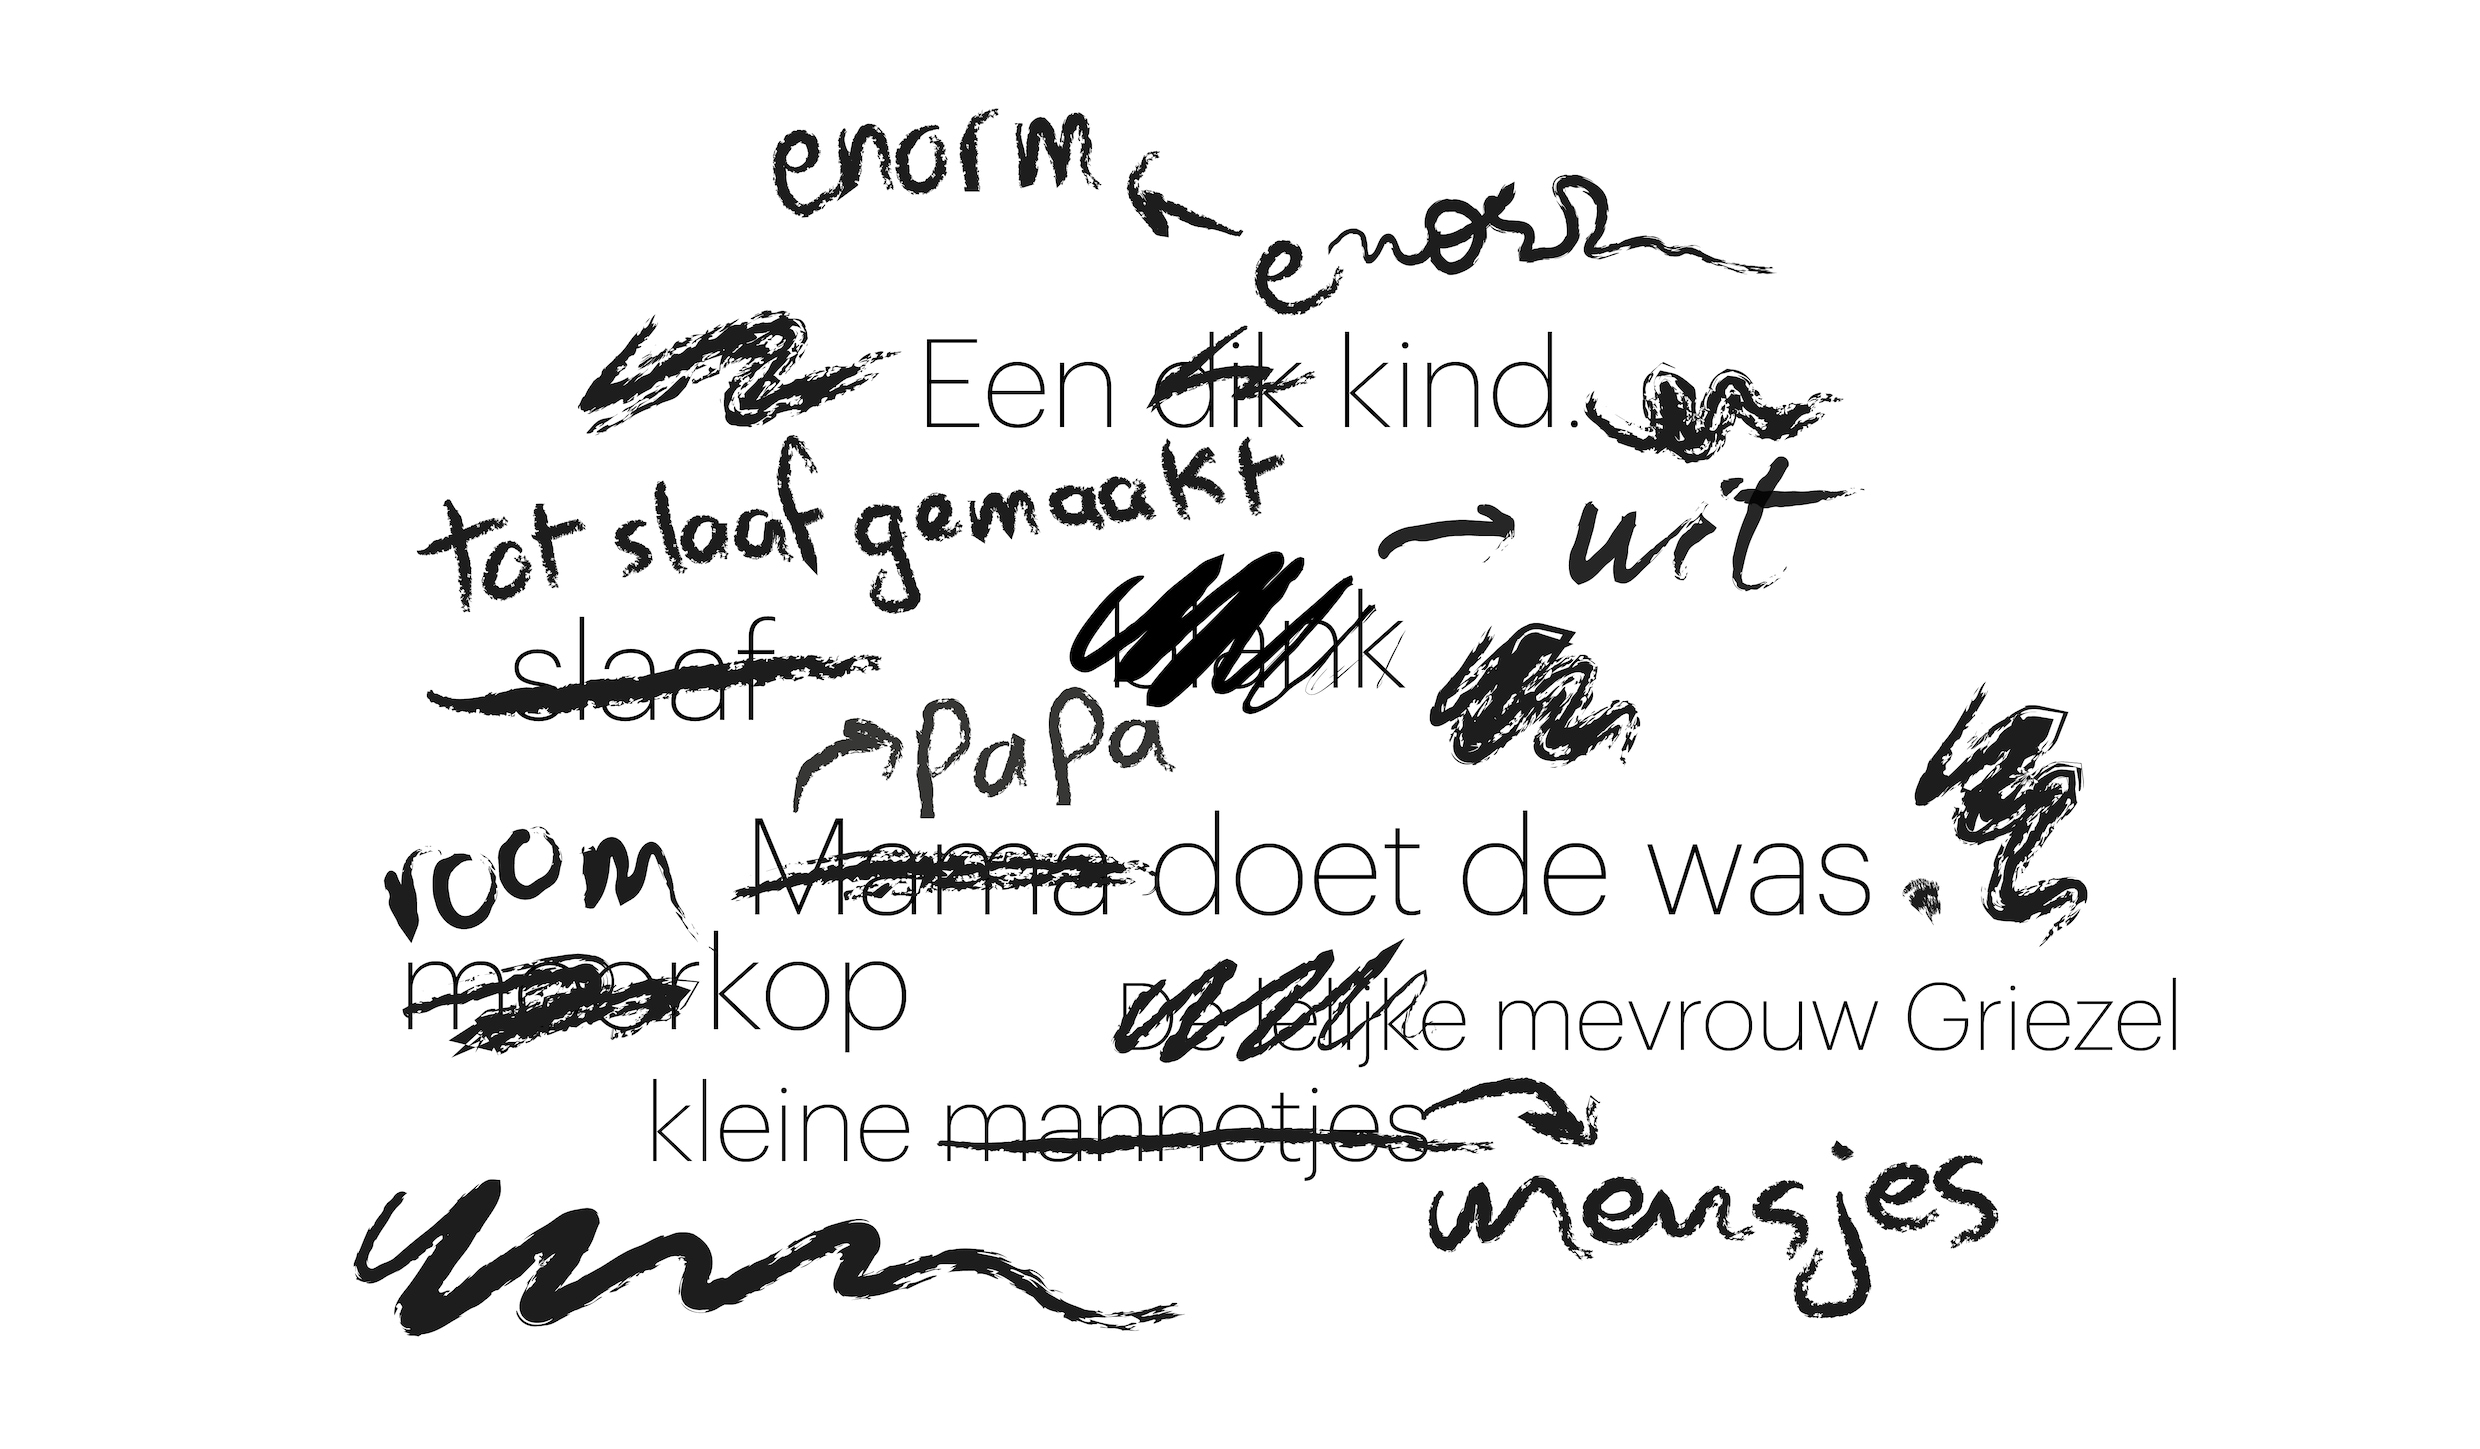 enorm
enorm
Een dik kind.
tot slaaf gemaakt
wit
slaaf
blank
papa
room
Mama doet de was.
moorkop
De lelijke mevrouw Griezel
kleine mannetjes
mensjes